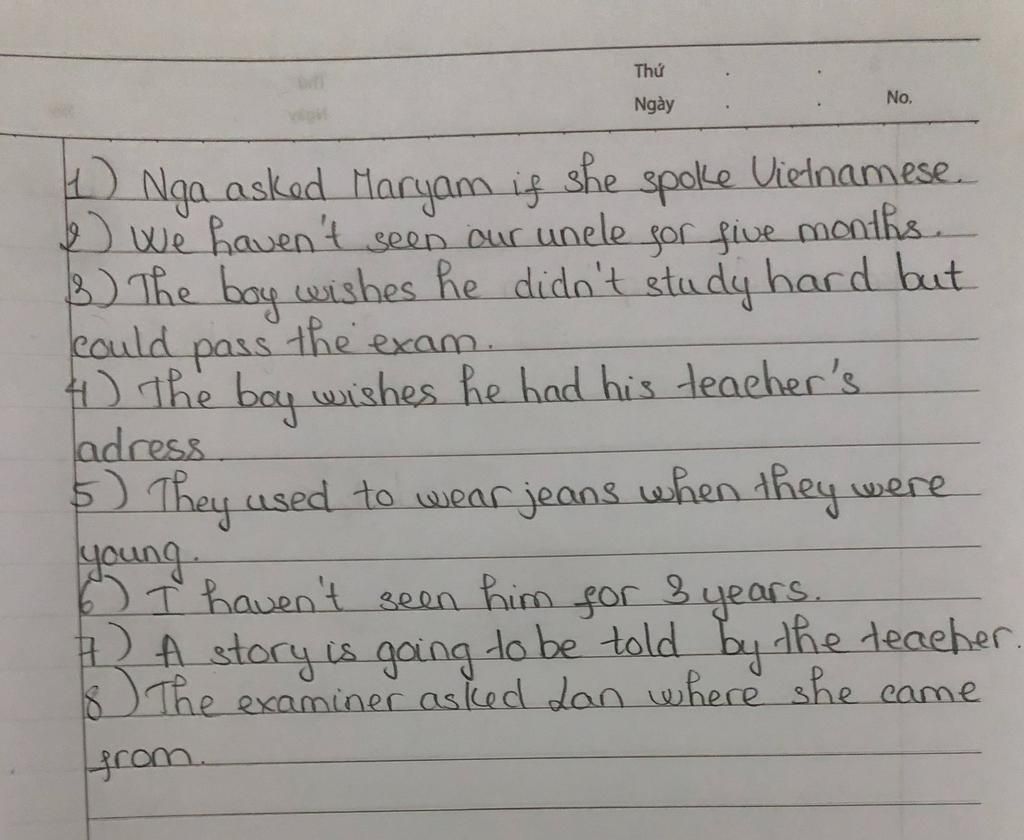 Thứ . .
Ngày . . No.
1) Nga asked Maryam if she spoke Vietnamese.
2) We haven't seen our uncle for five months.
3) The boy wishes he didn't study hard but
could pass the exam.
4) The boy wishes he had his teacher's
adress.
5) They used to wear jeans when they were
young.
6) I haven't seen him for 3 years.
7) A story is going to be told by the teacher.
8) The examiner asked Lan where she came
from.